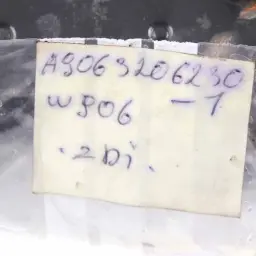 A9063206230
W906 -1
. 2Di .